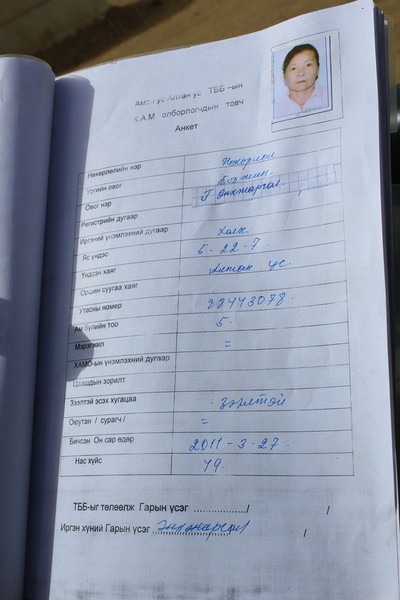 Алтан ус ТББ –ын
Х.А.М олборлогчдын товч
Анкет
Нөхөрлөлийн нэр Нөхөрлөл
Ургийн овог Боржигин
Овог нэр Г
Регистрийн дугаар
Иргэний үнэмлэхний дугаар
Яс үндэс Халх
Үндсэн хаяг 5-22-7
Оршин суугаа хаяг Алтан ус.
Утасны номер
Ам бүлийн тоо 5.
Мэргэжил =
ХАМО-ын үнэмлэхний дугаар
Цаашдын зорилт
Зээлтэй эсэх хугацаа - зээлтэй
Оюутан / сурагч / =
Бичсэн Он сар өдөр 2011-3-27.
Нас хүйс 49.
ТББ-ыг төлөөлж Гарын үсэг ..................../ /
Иргэн хүний Гарын үсэг /